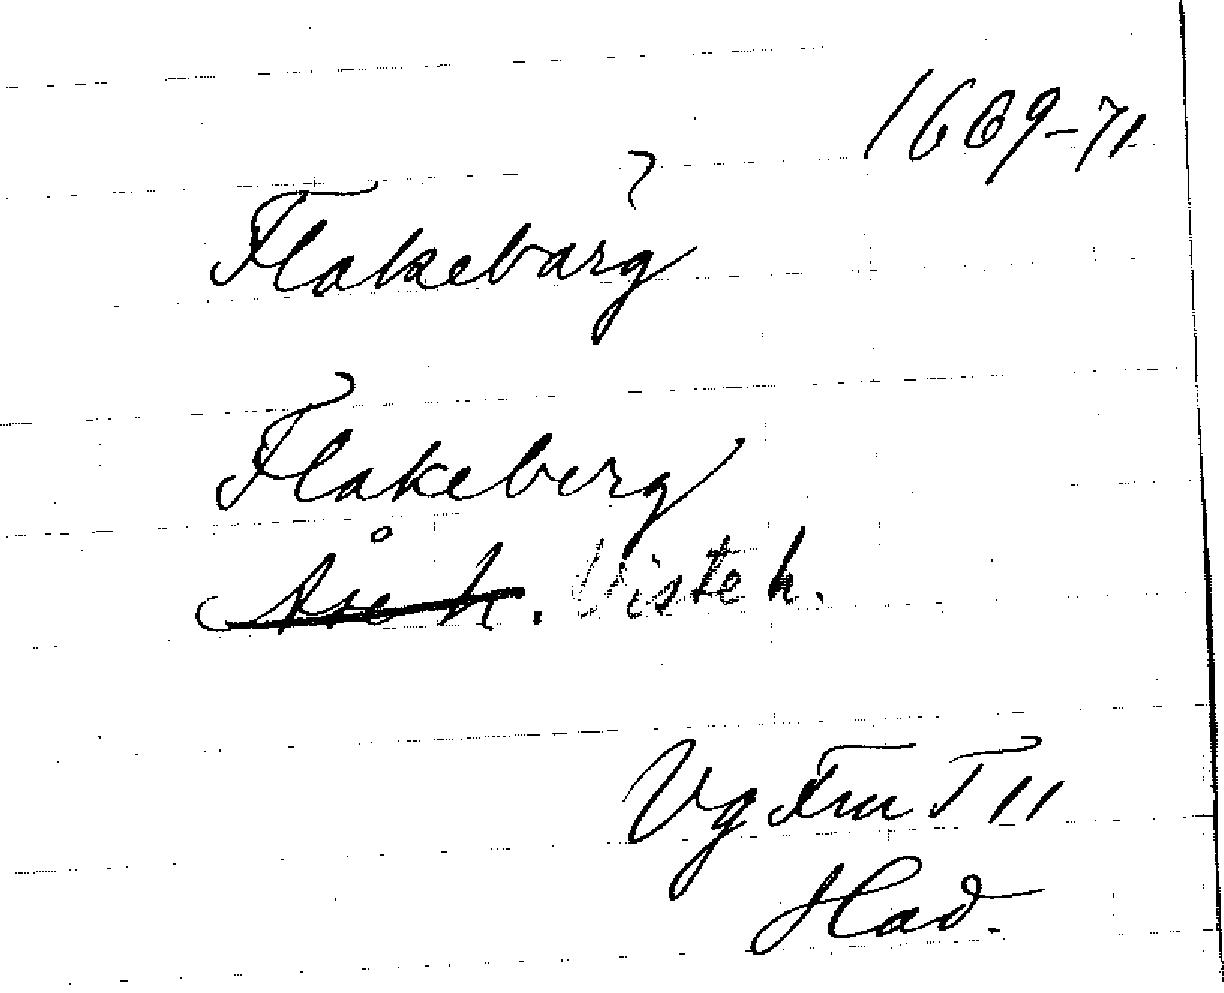 1669-71
?
Flakebarg
Flakeberg
Åse h. Viste h.
Vg Fru T 11
Had.